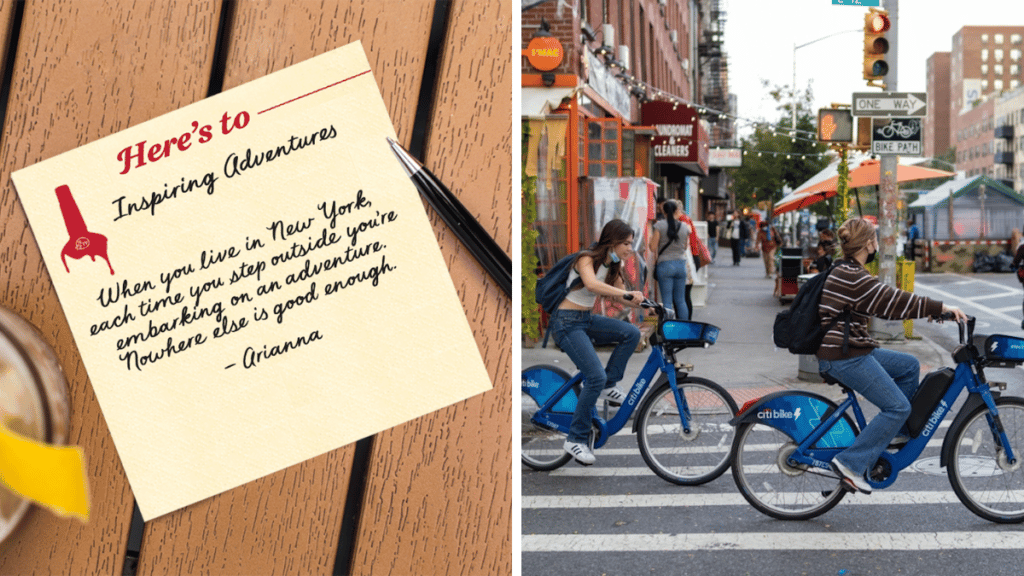 Here's to
Inspiring Adventures
When you live in New York,
each time you step outside you're
embarking on an adventure.
Nowhere else is good enough.
– Arianna
S'MAC
LAUNDROMAT
& CLEANERS
ONE WAY
BIKE PATH
citi bike
citi bike
citi bike